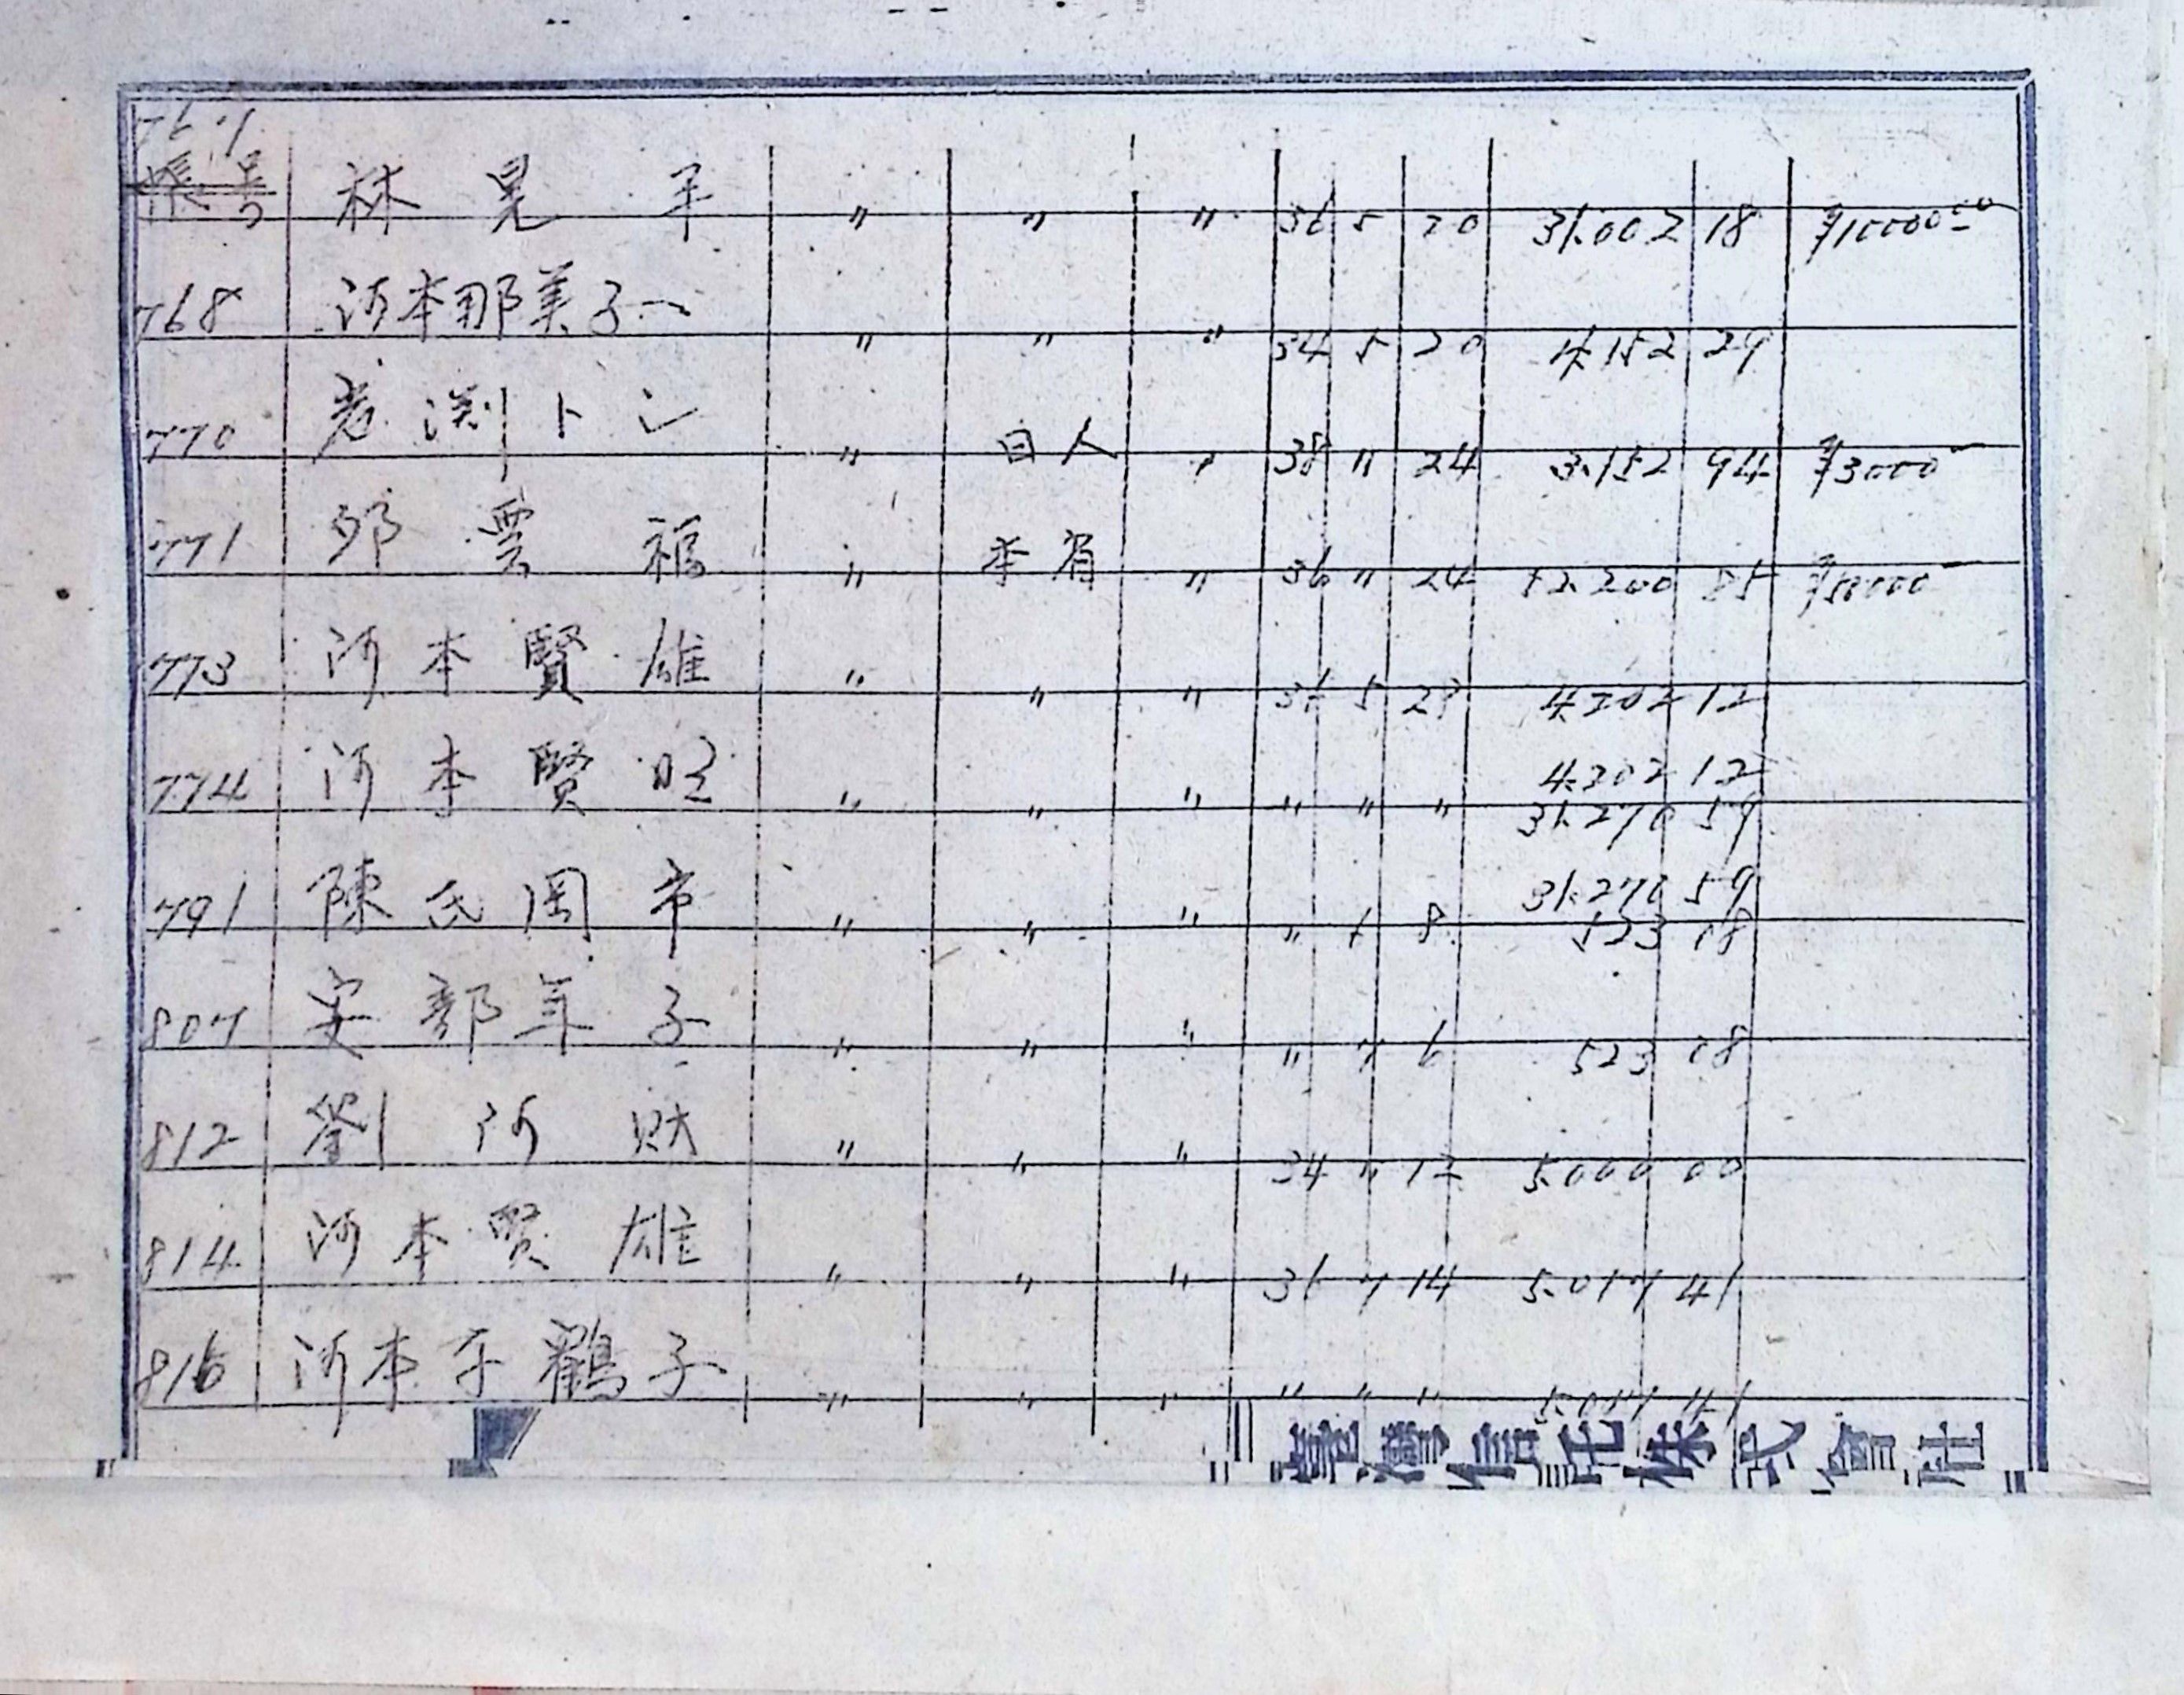 767
帳号 林 晃 平 " " " 36 5 20 31.002 18 ¥10000.00
768 河本那美子 " " " 34 5 20 4.152 29
770 岩渕トシ " 日人 " 38 " 24 3.152 94 ¥3000
771 邱 雲 福 " 本省 " 36 " 24 12.200 85 ¥10000
773 河本賢雄 " " " 36 5 29 4.202 12
774 河本賢旺 " " " " " " 4.202 12
31.270 59
791 陳氏岡市 " " " " 8 31.270 59
523 08
807 安部年子 " " " " 7 6 523 08
812 劉河財 " " " 34 " 12 5.000 00
814 河本賢雄 " " " 36 7 14 5.017 41
816 河本千鶴子 " " " " " " 5.017 41
臺灣信託株式會社